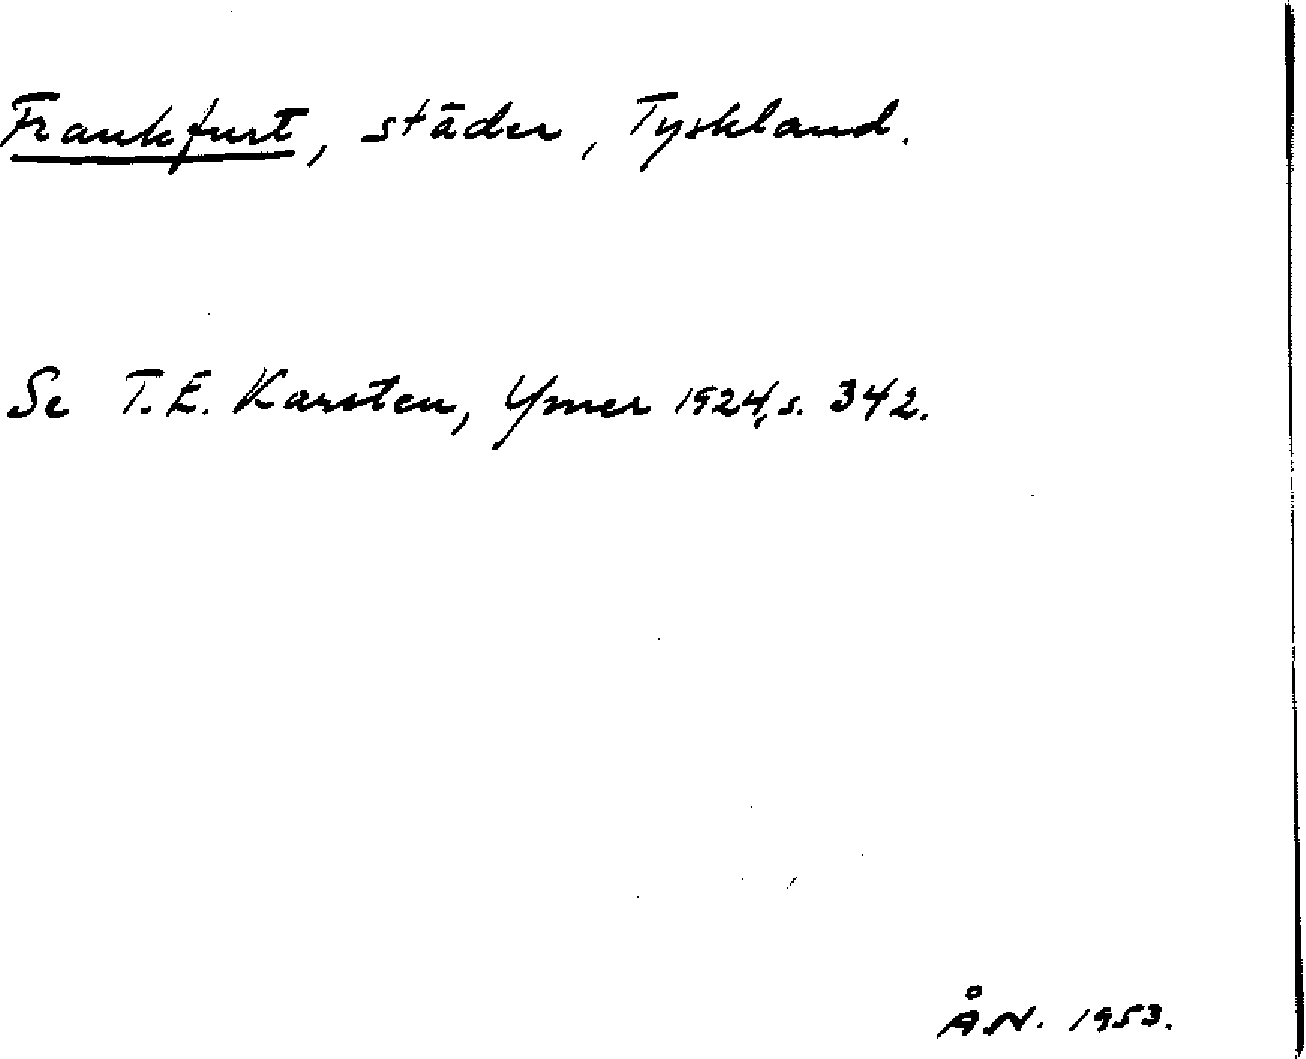 Frankfurt, städer, Tyskland.
Se T. E. Karsten, Ymer 1924, s. 342.
ÅN. 1953.